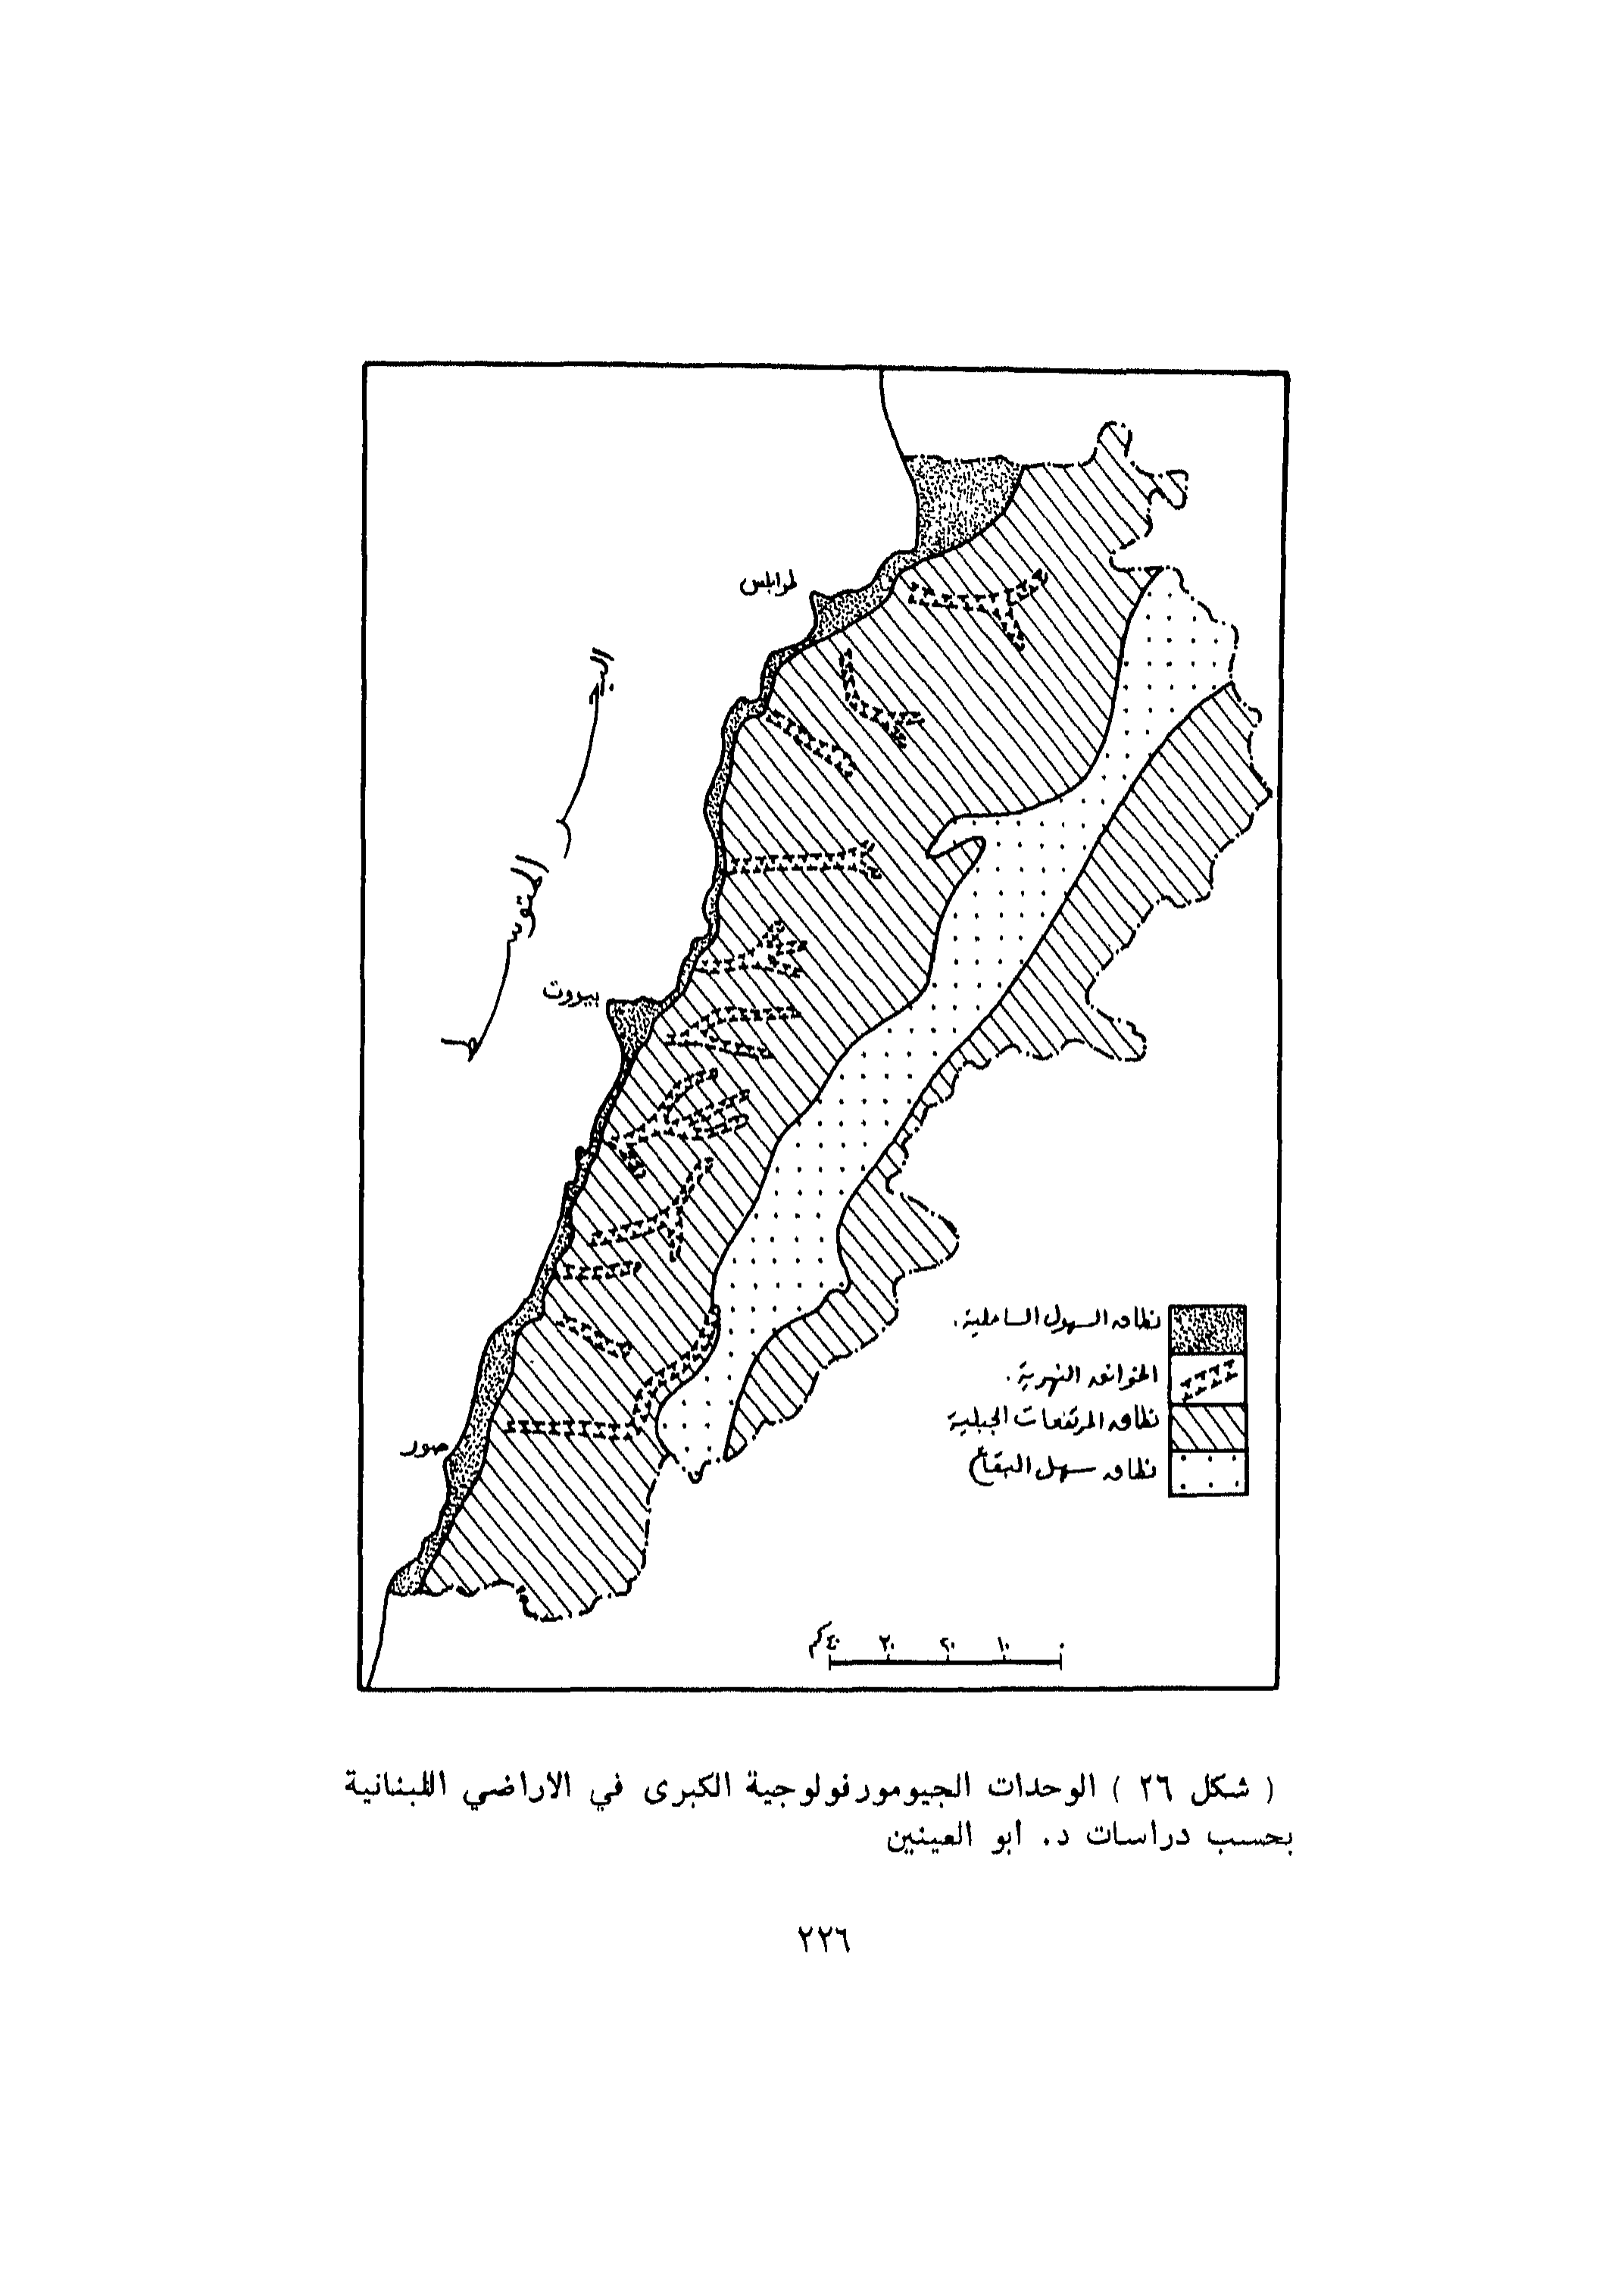 طرابلس
البحر المتوسط
بيروت
صور
نطاق السهول الساحلية.
الخوانق النهرية.
نطاق المرتفعات الجبلية
نطاق سهل البقاع
٠ ١٠ ٢٠ ٣٠ ٤٠ كم
( شكل ٢٦ ) الوحدات الجيومورفولوجية الكبرى في الاراضي اللبنانية
بحسب دراسات د. ابو العينين
٢٢٦